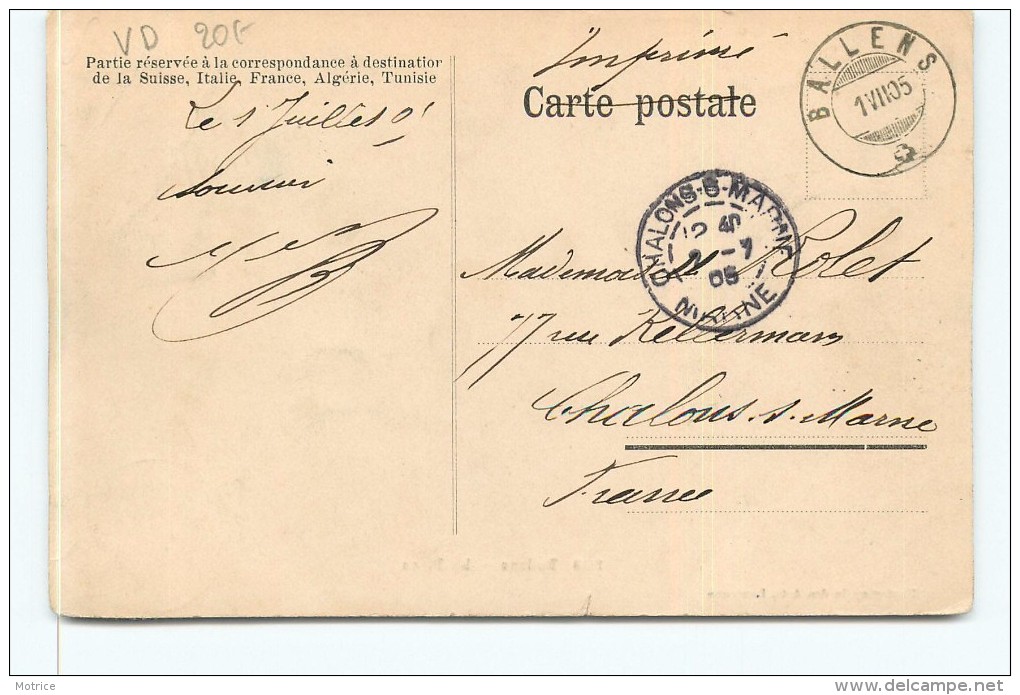 VD 20F
Partie réservée à la correspondance à destination
de la Suisse, Italie, France, Algérie, Tunisie
Le 1 Juillet 05
Souvenir
Imprimé
Carte postale
BALLENS
1 VII 05
CHALONS-S-MARNE
05
MARNE
Mademoiselle Rolet
77 rue Kellermann
Chalons. s. Marne
France
Motrice
http://www.delcampe.net